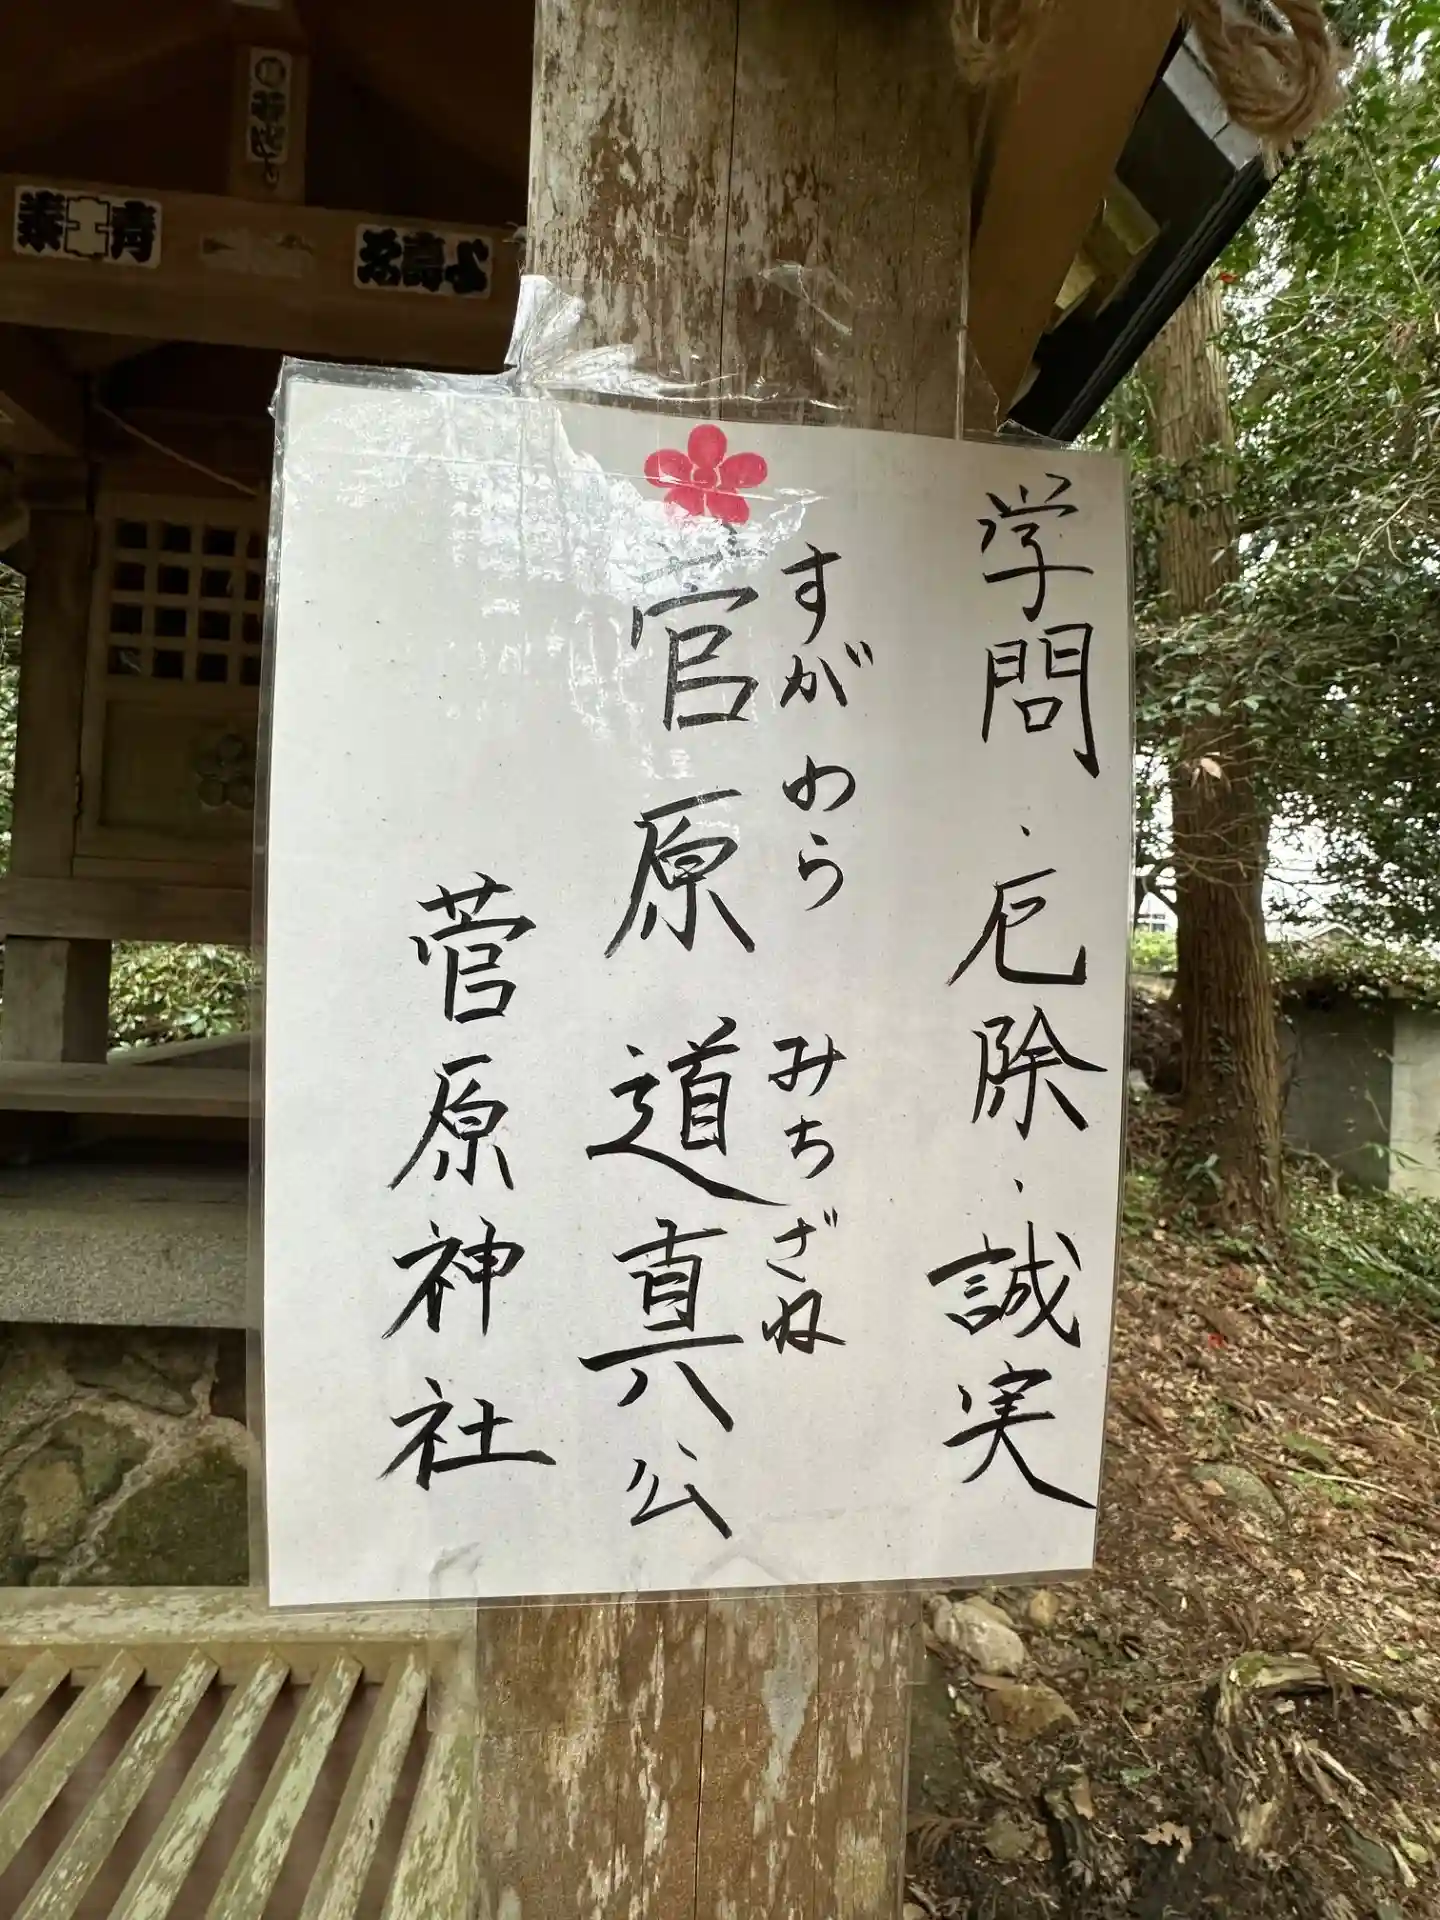 学問・厄除・誠実
すがわら みちざね
菅原道真公
菅原神社